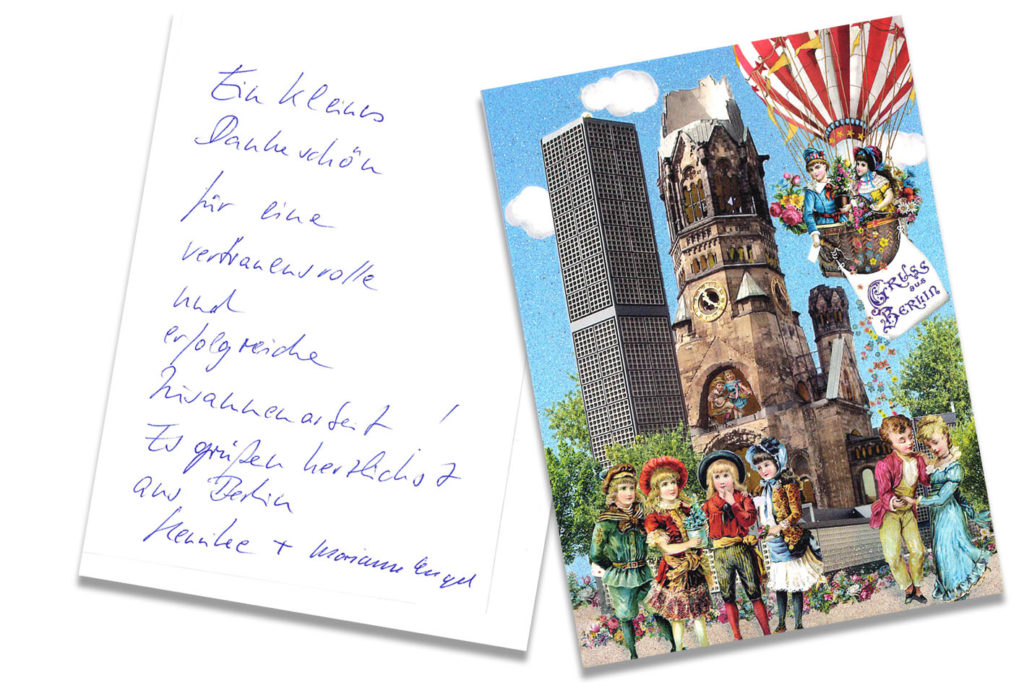 Ein kleines
Dankeschön
für eine
vertrauensvolle
und
erfolgreiche
Zusammenarbeit !
Es grüßen herzlichst
aus Berlin
+ Marianne Engel
Gruss
aus
Berlin